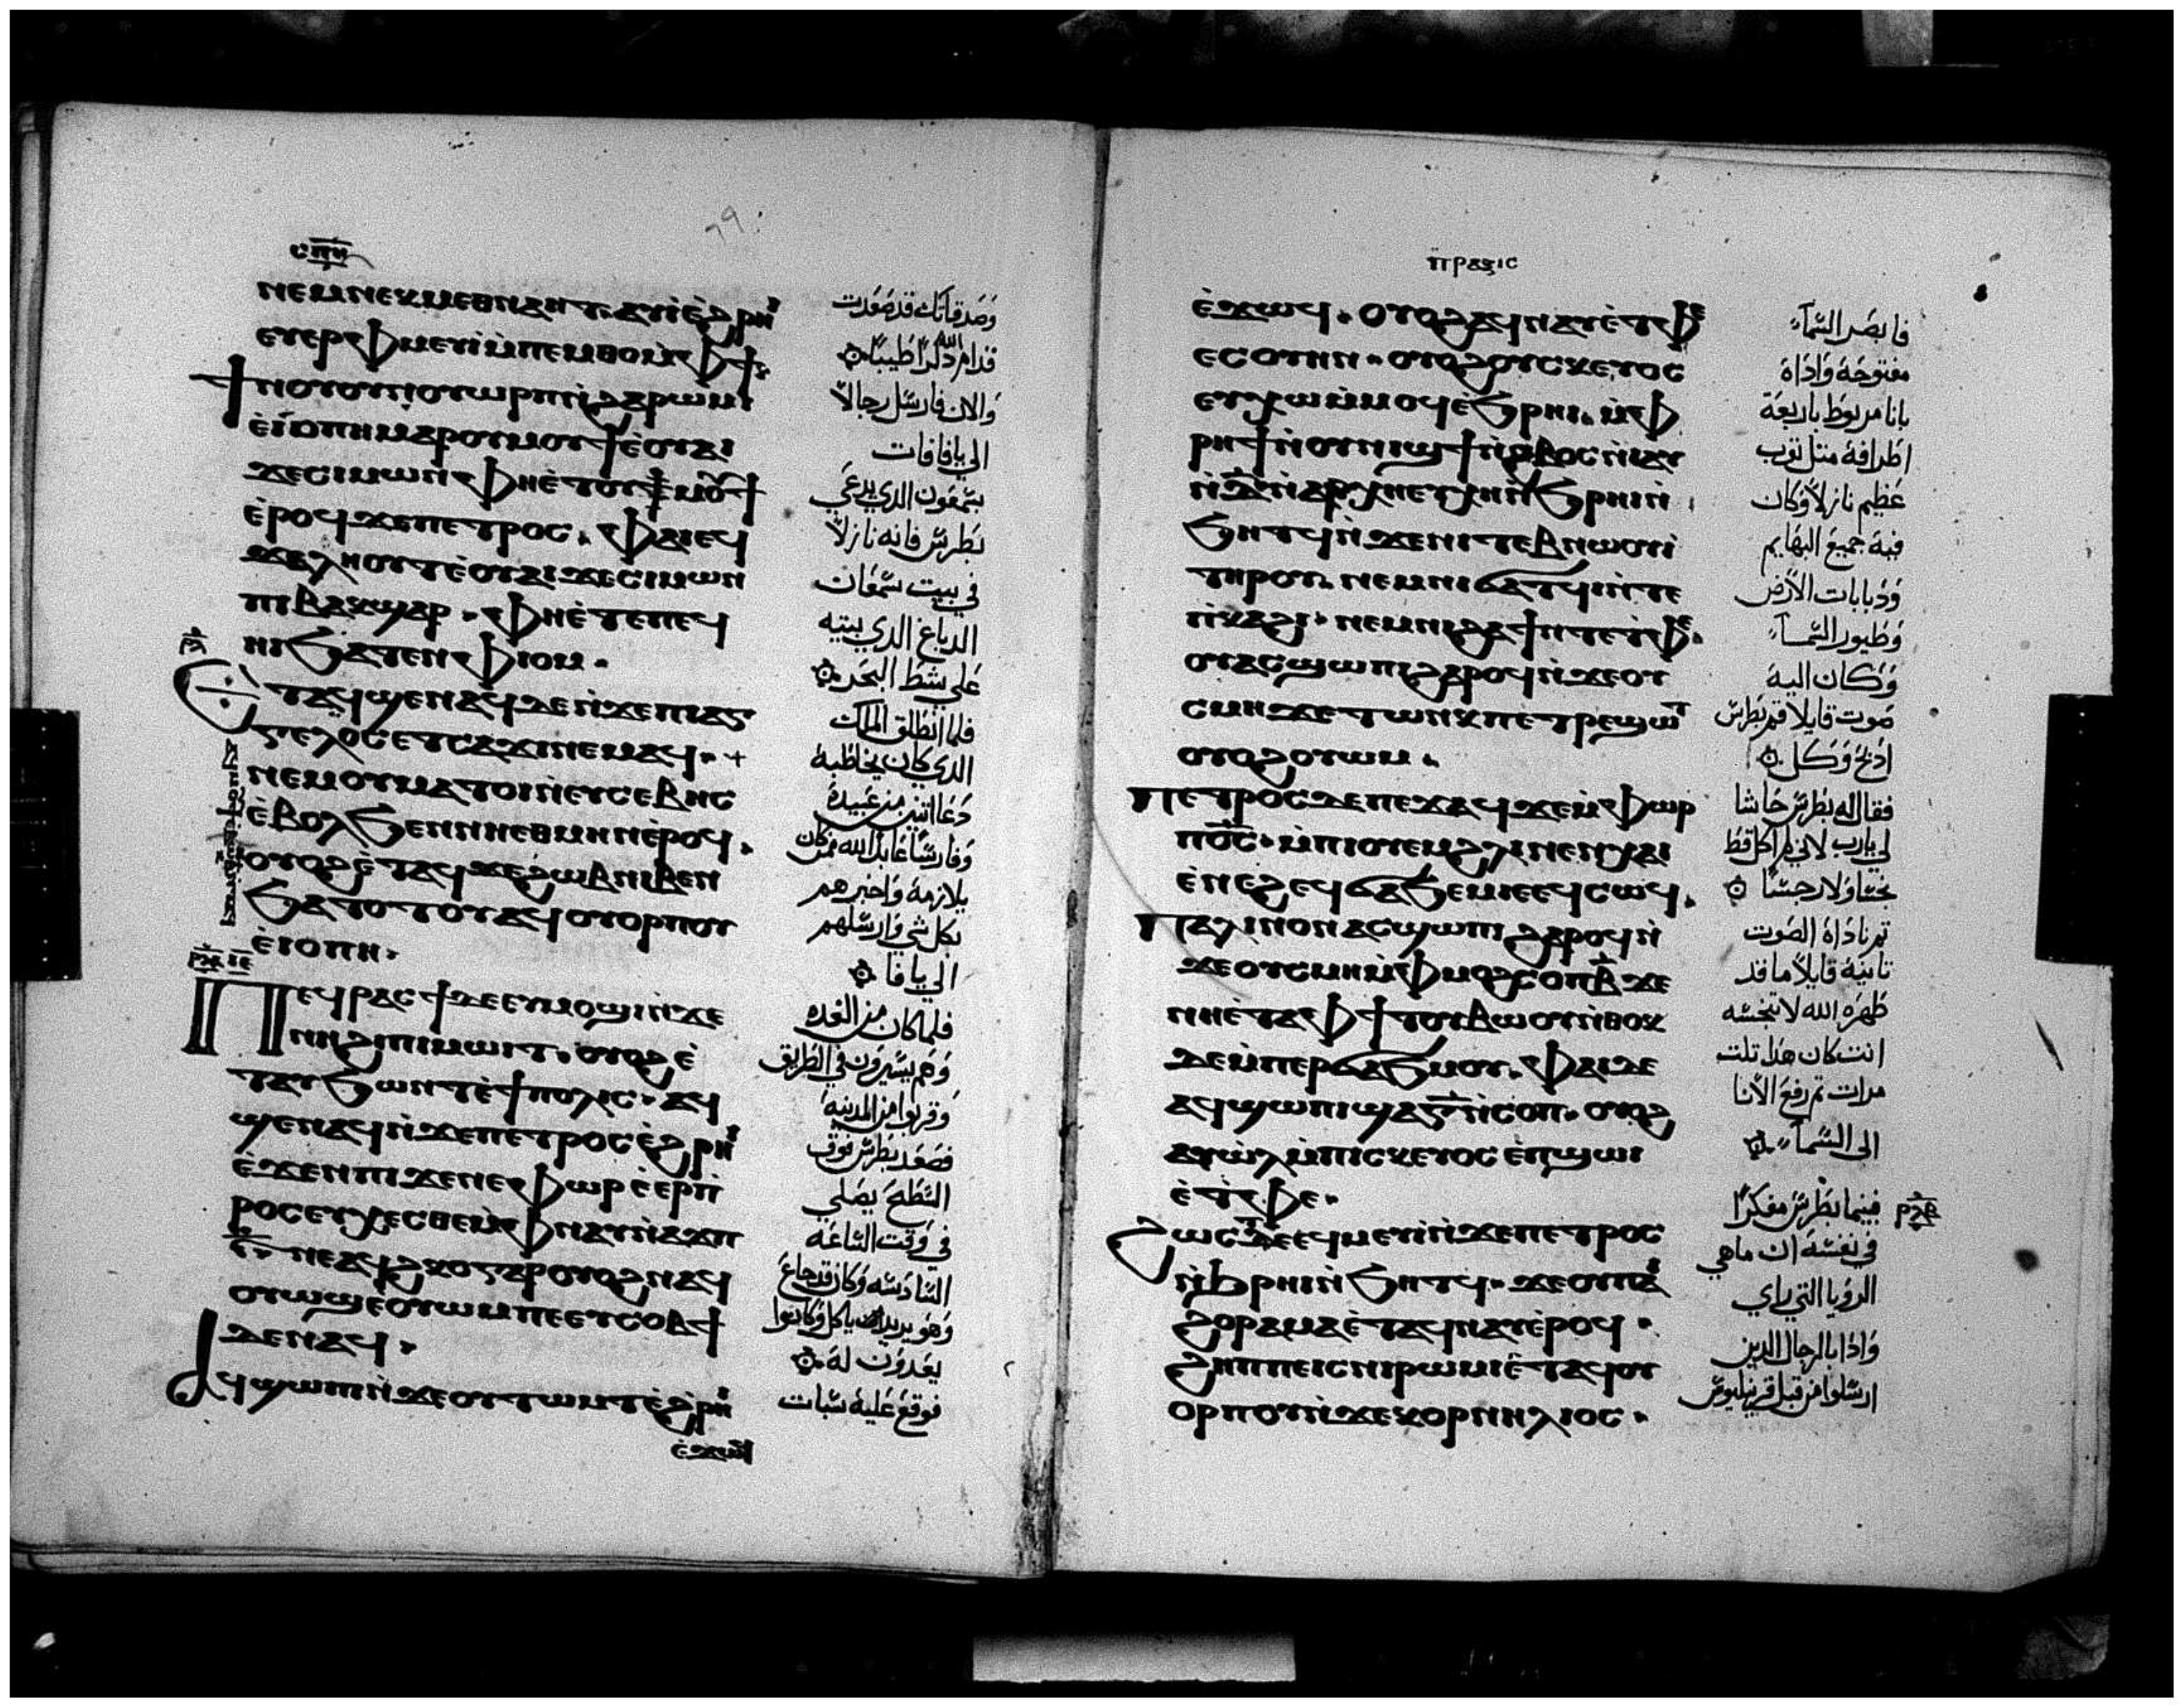 ⲥⲡⲏ
ⲛⲉⲙⲛⲉⲕⲙⲉⲑⲛⲁⲏⲧ. ⲁⲩⲓ̀ⲉ̀ϩⲣⲏⲓ
ⲉⲩⲉⲣⲫⲙⲉⲩⲓ̀ⲙ̀ⲡⲉⲙⲑⲟⲙ̀ⲫϯ.
ϯⲛⲟⲩⲟⲩⲛⲟⲩⲱⲣⲡⲛ̀ϩⲁⲣⲱⲙⲓ
ⲉ̀ⲓ̀ⲟⲡⲡⲏⲙⲁⲣⲟⲩⲙⲟⲩϯⲉ̀ⲟⲩⲁⲓ
ϫⲉⲥⲓⲙⲱⲛⲫⲏⲉ̀ⲧⲟⲩⲙⲟⲩϯ
ⲉ̀ⲣⲟϥϫⲉⲡⲉⲧⲣⲟⲥ. ⲫⲁⲓⲉϥ
ϫⲁⲗⲏⲟⲩⲧⲉ̀ⲟⲩⲁⲓϫⲉⲥⲓⲙⲱⲛ
ⲡⲓⲃⲁⲕϣⲁⲣ. ⲫⲏⲉ̀ⲧⲉⲡⲉϥ
ⲏⲓϧⲁⲧⲉⲛⲫⲓⲟⲙ.
ⲉ̀ⲧⲁϥϣⲉⲛⲁϥⲇⲉⲛ̀ϫⲉⲡⲓⲁⲅ
ⲅⲉⲗⲟⲥⲉⲧⲥⲁϫⲓⲛⲉⲙⲁϥ. +
ⲛⲉⲙⲟⲩⲙⲁⲧⲟⲓⲛ̀ⲉⲩⲥⲉⲃⲏⲥ
ⲉ̀ⲃⲟⲗϧⲉⲛⲛⲏⲉⲑⲙⲏⲛⲉ̀ⲣⲟϥ.
ⲟⲩⲟϩⲉ̀ⲧⲁϥϫⲉϩⲱⲃⲛⲓⲃⲉⲛ
ϧⲁⲧⲟⲧⲟⲩⲁϥⲟⲩⲟⲣⲡⲟⲩ
ⲉ̀ⲓⲟⲡⲏ.
ⲡⲉϥⲣⲁⲥϯⲇⲉⲉⲩⲙⲟϣⲓⲛ̀ϫⲉ
ⲛⲏϩⲓⲡⲓⲙⲱⲓⲧ. ⲟⲩⲟϩⲉ̀
ⲧⲁⲩϧⲱⲛⲧⲉ̀ϯⲡⲟⲗⲓⲥ. ⲁϥ
ϣⲉⲛⲁϥⲛ̀ϫⲉⲡⲉⲧⲣⲟⲥⲉ̀ϩⲣⲏⲓ
ⲉ̀ϫⲉⲛⲡⲓϫⲉⲛⲉⲫⲱⲣⲉ̀ⲉⲣⲡ̀
ⲣⲟⲥⲉⲩⲭⲉⲥⲑⲉⲙ̀ⲫⲛⲁⲩⲛ̀ⲁϫⲡ
ⲋ̅. ⲛⲉⲁϥϩⲕⲟⲅⲁⲣⲟⲩⲟϩⲛⲁϥ
ⲟⲩⲱϣⲉ̀ⲟⲩⲱⲙⲡⲉⲉⲩⲥⲟⲃϯ
ⲇⲉⲛⲁϥ.
ⲁϥϣⲱⲡⲓⲛ̀ϫⲉⲟⲩⲧⲱⲙⲧⲉ̀ϩⲣⲏⲓ
ⲉ̀ϫⲱϥ
وَصَدقاتك قد صَعَدت
قدام الله ذكرًا طيبًا
والان فارسَل رجالاً
الي يافا فات
بسَمعَون الذي يدعَي
بطرسَ فانه نازلاً
في بيت سَمعَان
الدباغ الذي بيته
عَلي شط البحَر
فلما انطلق الملاك
الذي كان يخاطبه
دَعَا اتنين من عَبيده
وفارسًا عَابد الله ممن كان
يلازمه وَاخبرهم
بكل شي وَارسَلهم
الي يافا
فلما كان من الغده
وَهَم يسَيرون في الطريق
وقربوا من المدينه
فصَعَد بطرسَ فوق
السَطح يصَلي
في وقت السَاعَه
السَادسَه وَكان قد جاعَ
وَهَو يريد ان ياكل وكانوا
يعَدوَن له
فوقعَ عَليه سَبات
ⲡⲣⲁⲝⲓⲥ
ⲉ̀ϫⲱϥ. ⲟⲩⲟϩⲁϥⲛⲁⲩⲉ̀ⲧⲫⲉ
ⲉⲥⲟⲩⲏⲛ. ⲟⲩⲟϩⲟⲩⲥⲕⲉⲩⲟⲥ
ⲉⲩⲭⲱⲙ̀ⲙⲟϥⲉ̀ϧⲣⲏⲓ. ⲙ̀ⲫ
ⲣⲏϯⲛ̀ⲟⲩⲛⲓϣϯⲛ̀ϩⲃⲟⲥⲛ̀ⲓⲁⲩ
ⲛ̀ⲇ̅ⲛ̀ⲁⲣⲭⲏⲉⲧⲭⲏⲛ̀ϧⲣⲏⲓⲛ̀
ϧⲏⲧϥⲛ̀ϫⲉⲛⲓⲧⲉⲃⲛⲱⲟⲩⲓ̀
ⲧⲏⲣⲟⲩ. ⲛⲉⲙⲛⲓϭⲁⲧϥⲓⲛ̀ⲧⲉ
ⲡⲕⲁϩⲓ. ⲛⲉⲙⲛⲓϩⲁⲗⲁϯⲛⲧⲉⲧⲫⲉ.
ⲟⲩⲁⲥϣⲱⲡⲓϩⲁⲣⲟϥⲛ̀ϫⲉⲟⲩ
ⲥⲙⲏϫⲉⲧⲱⲛⲕⲡⲉⲧⲣⲉϣⲱⲧ
ⲟⲩⲟϩⲟⲩⲱⲙ.
ⲡⲉⲧⲣⲟⲥⲇⲉⲡⲉϫⲁϥϫⲉⲙ̀ⲫⲱⲣ
ⲡⲟ̅ⲥ̅. ⲙ̀ⲡⲓⲟⲩⲉⲙϩⲗⲓⲛⲉⲛⲭⲁⲓ
ⲉ̀ⲛⲉϩⲉϥϭⲁϧⲉⲙⲓⲉⲉϥⲥⲱϥ.
ⲡⲁⲗⲓⲛⲟⲛⲁⲥϣⲱⲡⲓϩⲁⲣⲟϥⲛ̀
ϫⲉⲟⲩⲥⲙⲏⲙ̀ⲫⲙⲟϩⲥⲟⲡⲃ̅ϫⲉ
ⲛⲏⲉ̀ⲧⲁⲫϯⲧⲟⲩⲃⲱⲟⲩⲛ̀ⲑⲟⲕ
ⲇⲉⲙ̀ⲡⲉⲣϭⲁϧⲙⲟⲩ. ⲫⲁⲓⲇⲉ
ⲁϥϣⲱⲡⲓϣⲁⲅ̅ⲛ̀ⲥⲟⲡ. ⲟⲩⲟϩ
ⲁⲩⲱ̀ⲗⲙ̀ⲡⲓⲥⲕⲉⲩⲟⲥⲉ̀ⲡϣⲱⲓ
ⲉ̀ⲧⲫⲉ.
ϩⲱⲥⲇⲉⲉϥⲙⲉⲩⲓⲛ̀ϫⲉⲡⲉⲧⲣⲟⲥ
ⲛ̀ϧⲣⲏⲓⲛ̀ϧⲏⲧϥ. ϫⲉⲟⲩⲡⲉ
ϩⲟⲣⲁⲙⲁⲉ̀ⲧⲁϥⲛⲁⲩⲉ̀ⲣⲟϥ.
ϩⲏⲡⲡⲉⲓⲥⲛⲓⲣⲱⲙⲓⲉ̀ⲧⲁϥⲟⲩ
ⲟⲣⲡⲟⲩⲛ̀ϫⲉⲕⲟⲣⲛⲏⲗⲓⲟⲥ.
فابصَر السَمآء
مفتوحَة وَاذاة
بانا مربوَط باربعَة
اطرافه متل توب
عَظيم نازلاً وكان
فيه جميعَ البهَايم
وَدبابات الاَرض
وَطيور السَمآء
وَكان اليه
صَوت قايلاً قم يا بطرسَ
اذبح وَكل
فقال له بطرسَ حَاشا
لي يارب لاني لم اكل قط
نجسًا ولا رجسًا
تم ناداة الصَوت
تانيه قايلاً ما قد
طهَره الله لا تنجسَه
انت كان هَذا تلت
مرات تم رفعَ الاَنا
الى السَمآء
فبينما بطرسَ مفكرًا
في نفسَه ان ما هي
الرؤيا التي راي
وَاذا بالرجال الذين
ارسَلوا من قبل قرنيليوسَ
ⲣϩⲃ